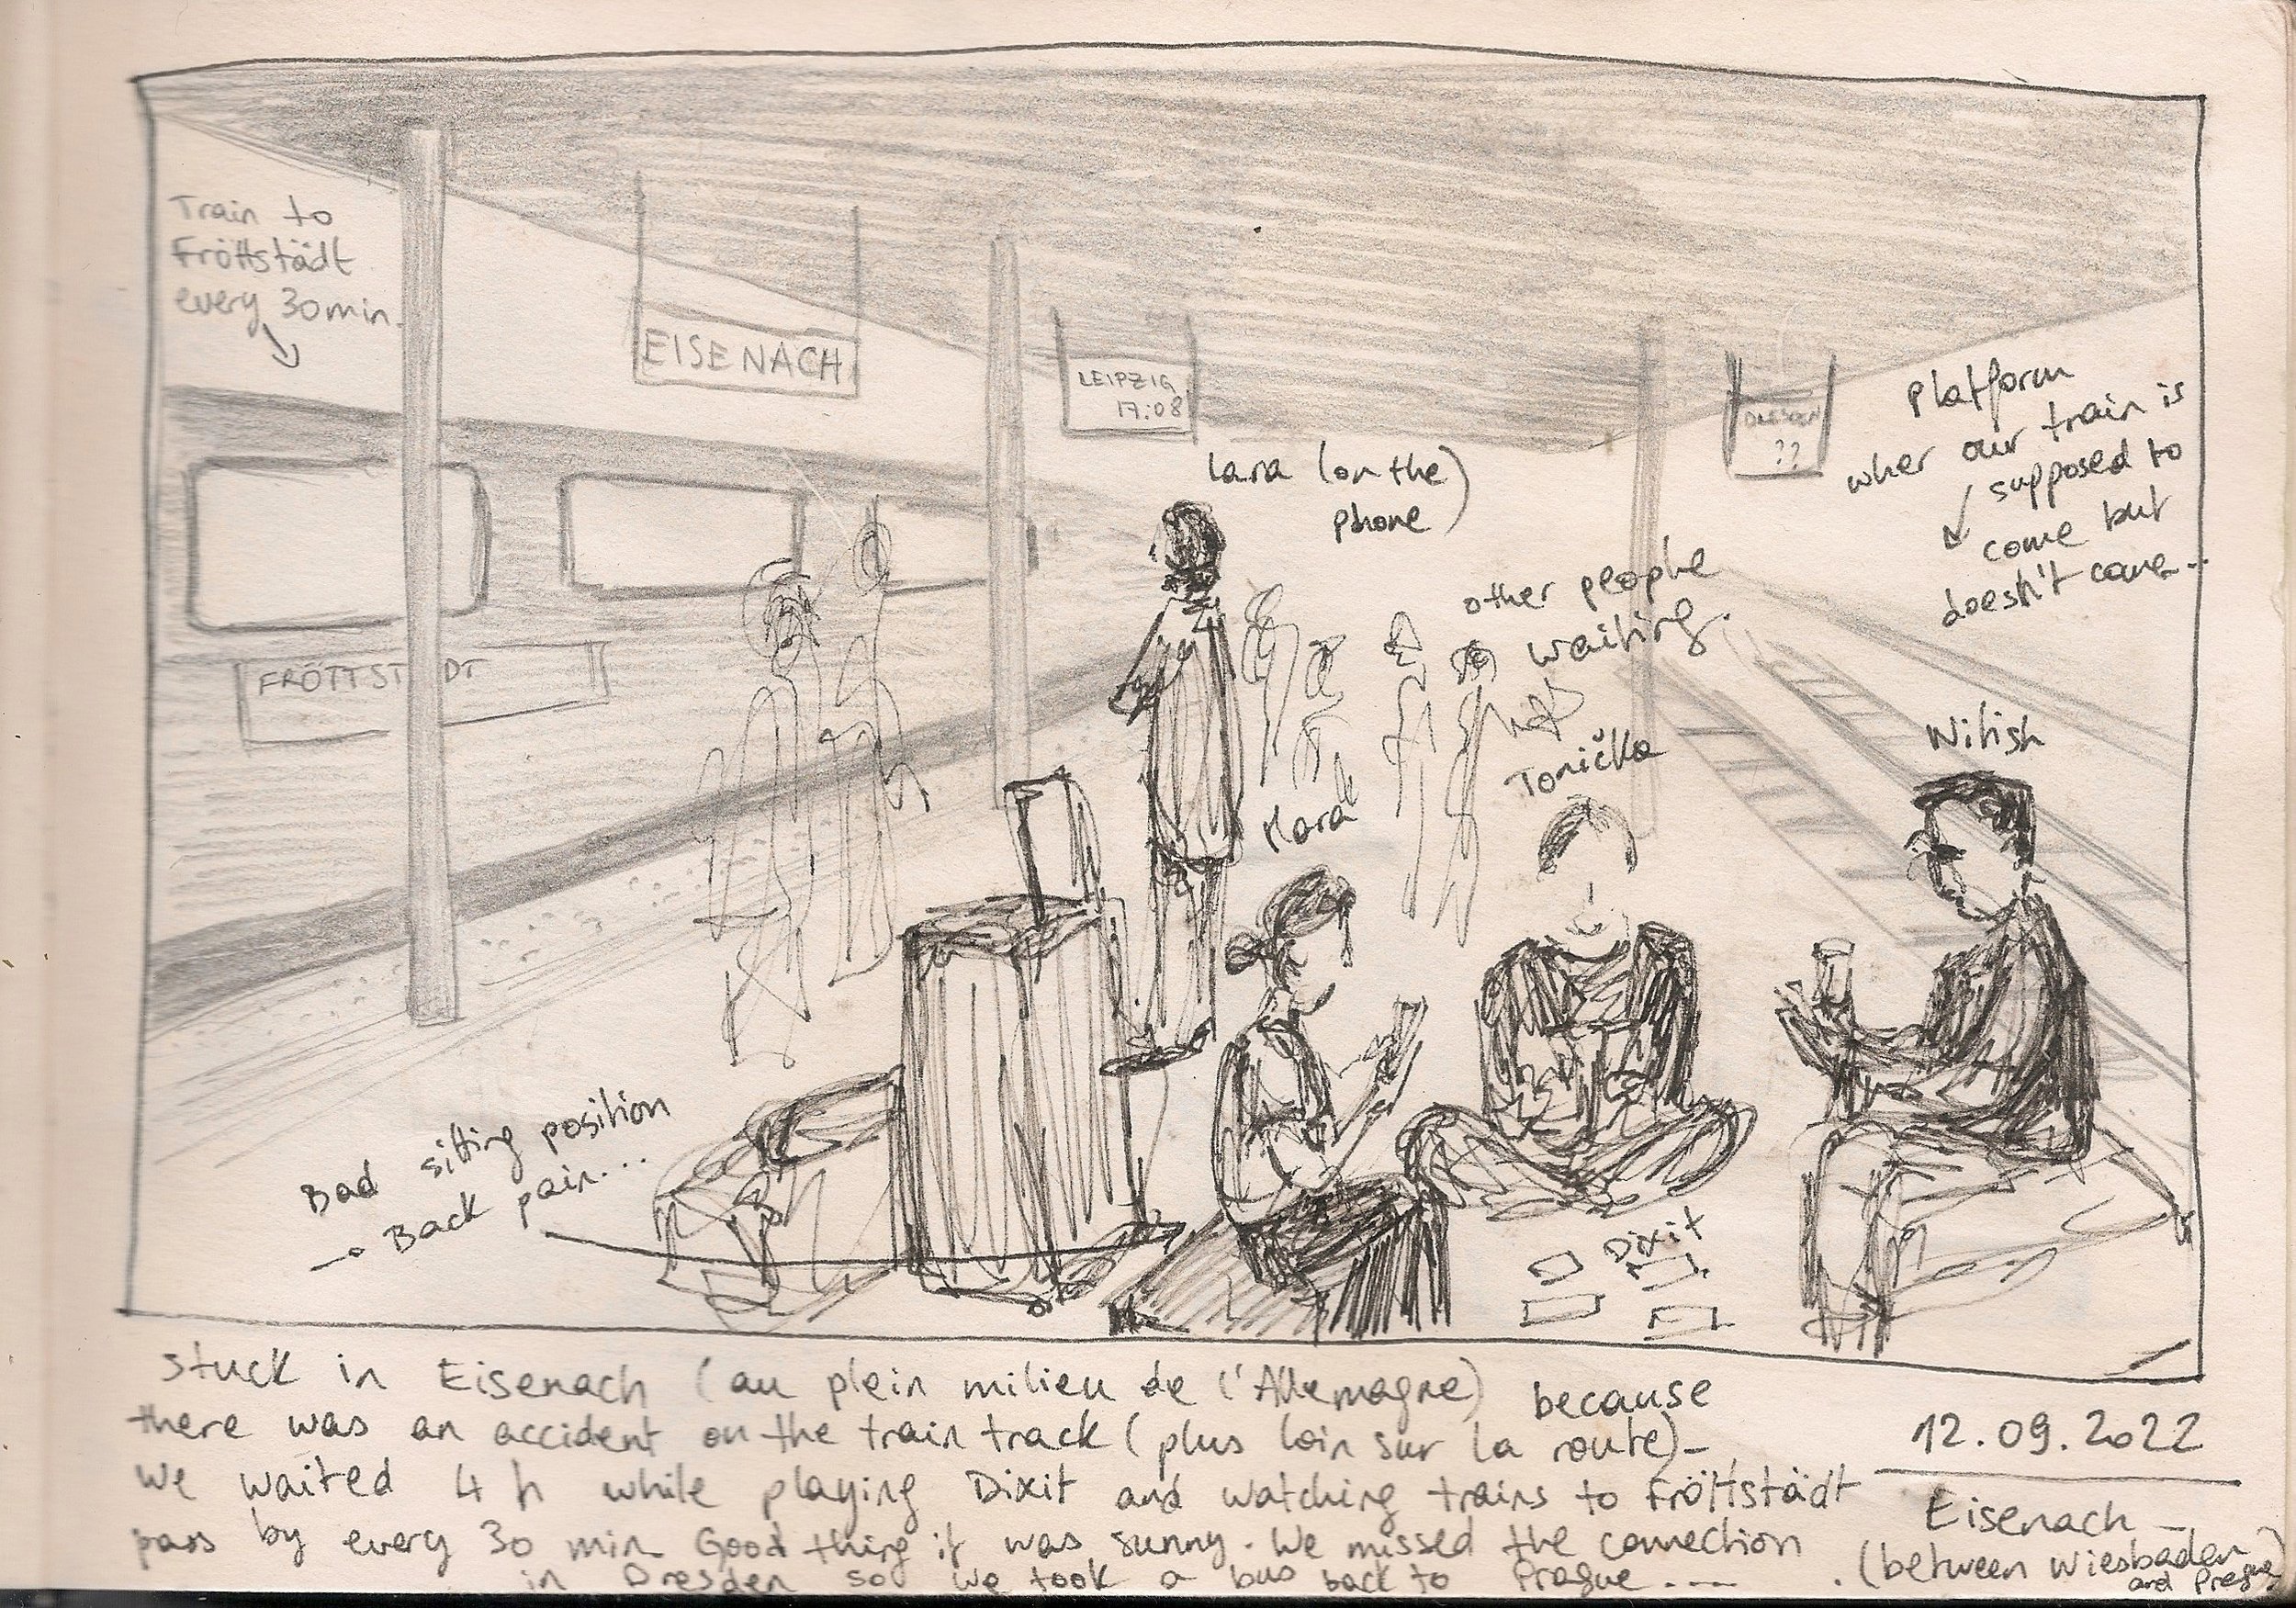 Train to
Fröttstädt
every 30min.
EISENACH
LEIPZIG
17:08
DRESDEN
??
Platform
wher our train is
supposed to
come but
doesn't come...
Lara (on the
phone)
other people
waiting.
FRÖTTST DT
Klara
Tonička
Nitish
Bad sitting position
→ Back pain...
Dixit
Stuck in Eisenach (au plein milieu de l'Allemagne) because
there was an accident on the train track (plus loin sur la route)-
We waited 4 h while playing Dixit and watching trains to Fröttstädt
pass by every 30 min. Good thing it was sunny. We missed the connection
in Dresden so we took a bus back to Prague....
12.09.2022
Eisenach -
(between Wiesbaden
and Prague)